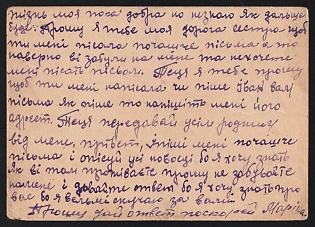 жизнь моя пока добра но незнаю як дальше
буде. Прошу я тебе моя дорога сестра щоб
ти мені писала почаще письма а то
наверно ві забули на мене та нехочете
мені писать письом. Теця я тебе прошу
щоб ти мені написала чи пише Іван вам
письма як пише то напишіть мені його
адрест. Теця передавай усім родним
від мене, привет, пиши мені почаще
письма і описуй усі новосці бо я хочу знать
як ві там проживаєте прошу не забувайте
намене і давайте ответ бо я хочу знать про
вас бо я вельми скучаю за вами
Прошу дай ответ поскорей Марія.